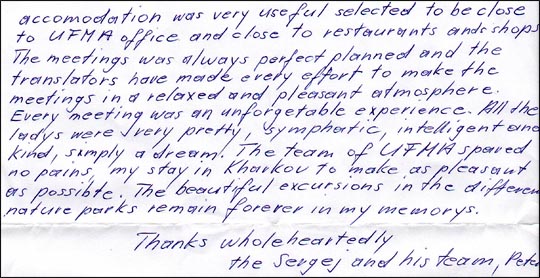 accomodation was very useful selected to be close
to UFMA office and close to restaurants and shops
The meetings was always perfect planned and the
translators have made every effort to make the
meetings in a relaxed and pleasant atmosphere.
Every meeting was an unforgetable experience. All the
ladys were very pretty, symphatic, intelligent and
kind, simply a dream. The team of UFMA spared
no pains, my stay in Kharkov to make as pleasant
as possible. The beautiful excursions in the differen
nature parks remain forever in my memorys.
Thanks wholeheartedly
the Sergej and his team, Peter